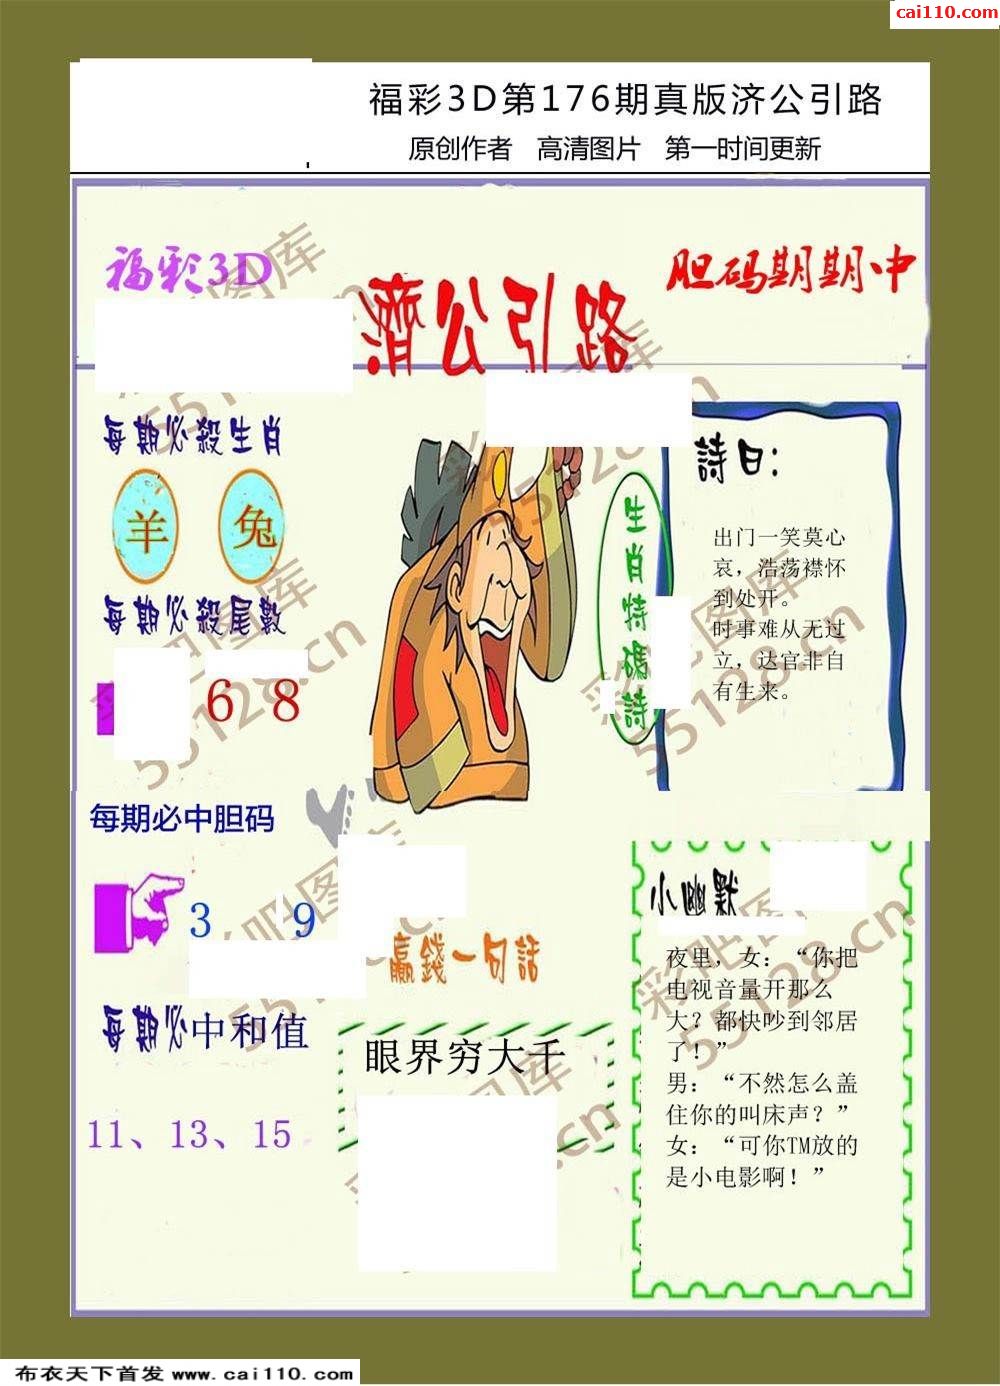 cai110.com
福彩3D第176期真版济公引路
原创作者 高清图片 第一时间更新
福彩3D
濟公引路
胆码期期中
每期必殺生肖
羊 兔
每期必殺尾數
6 8
每期必中胆码
3 9
每期必中和值
11、13、15
生肖特碼詩
詩曰:
出门一笑莫心
哀，浩荡襟怀
到处开。
时事难从无过
立，达官非自
有生来。
贏錢一句話
眼界穷大千
小幽默
夜里，女：“你把
电视音量开那么
大？都快吵到邻居
了！”
男：“不然怎么盖
住你的叫床声？”
女：“可你TM放的
是小电影啊！”
彩吧图库
55128.cn
彩吧图库
55128.cn
彩吧图库
55128.cn
彩吧图库
55128.cn
布衣天下首发 www.cai110.com